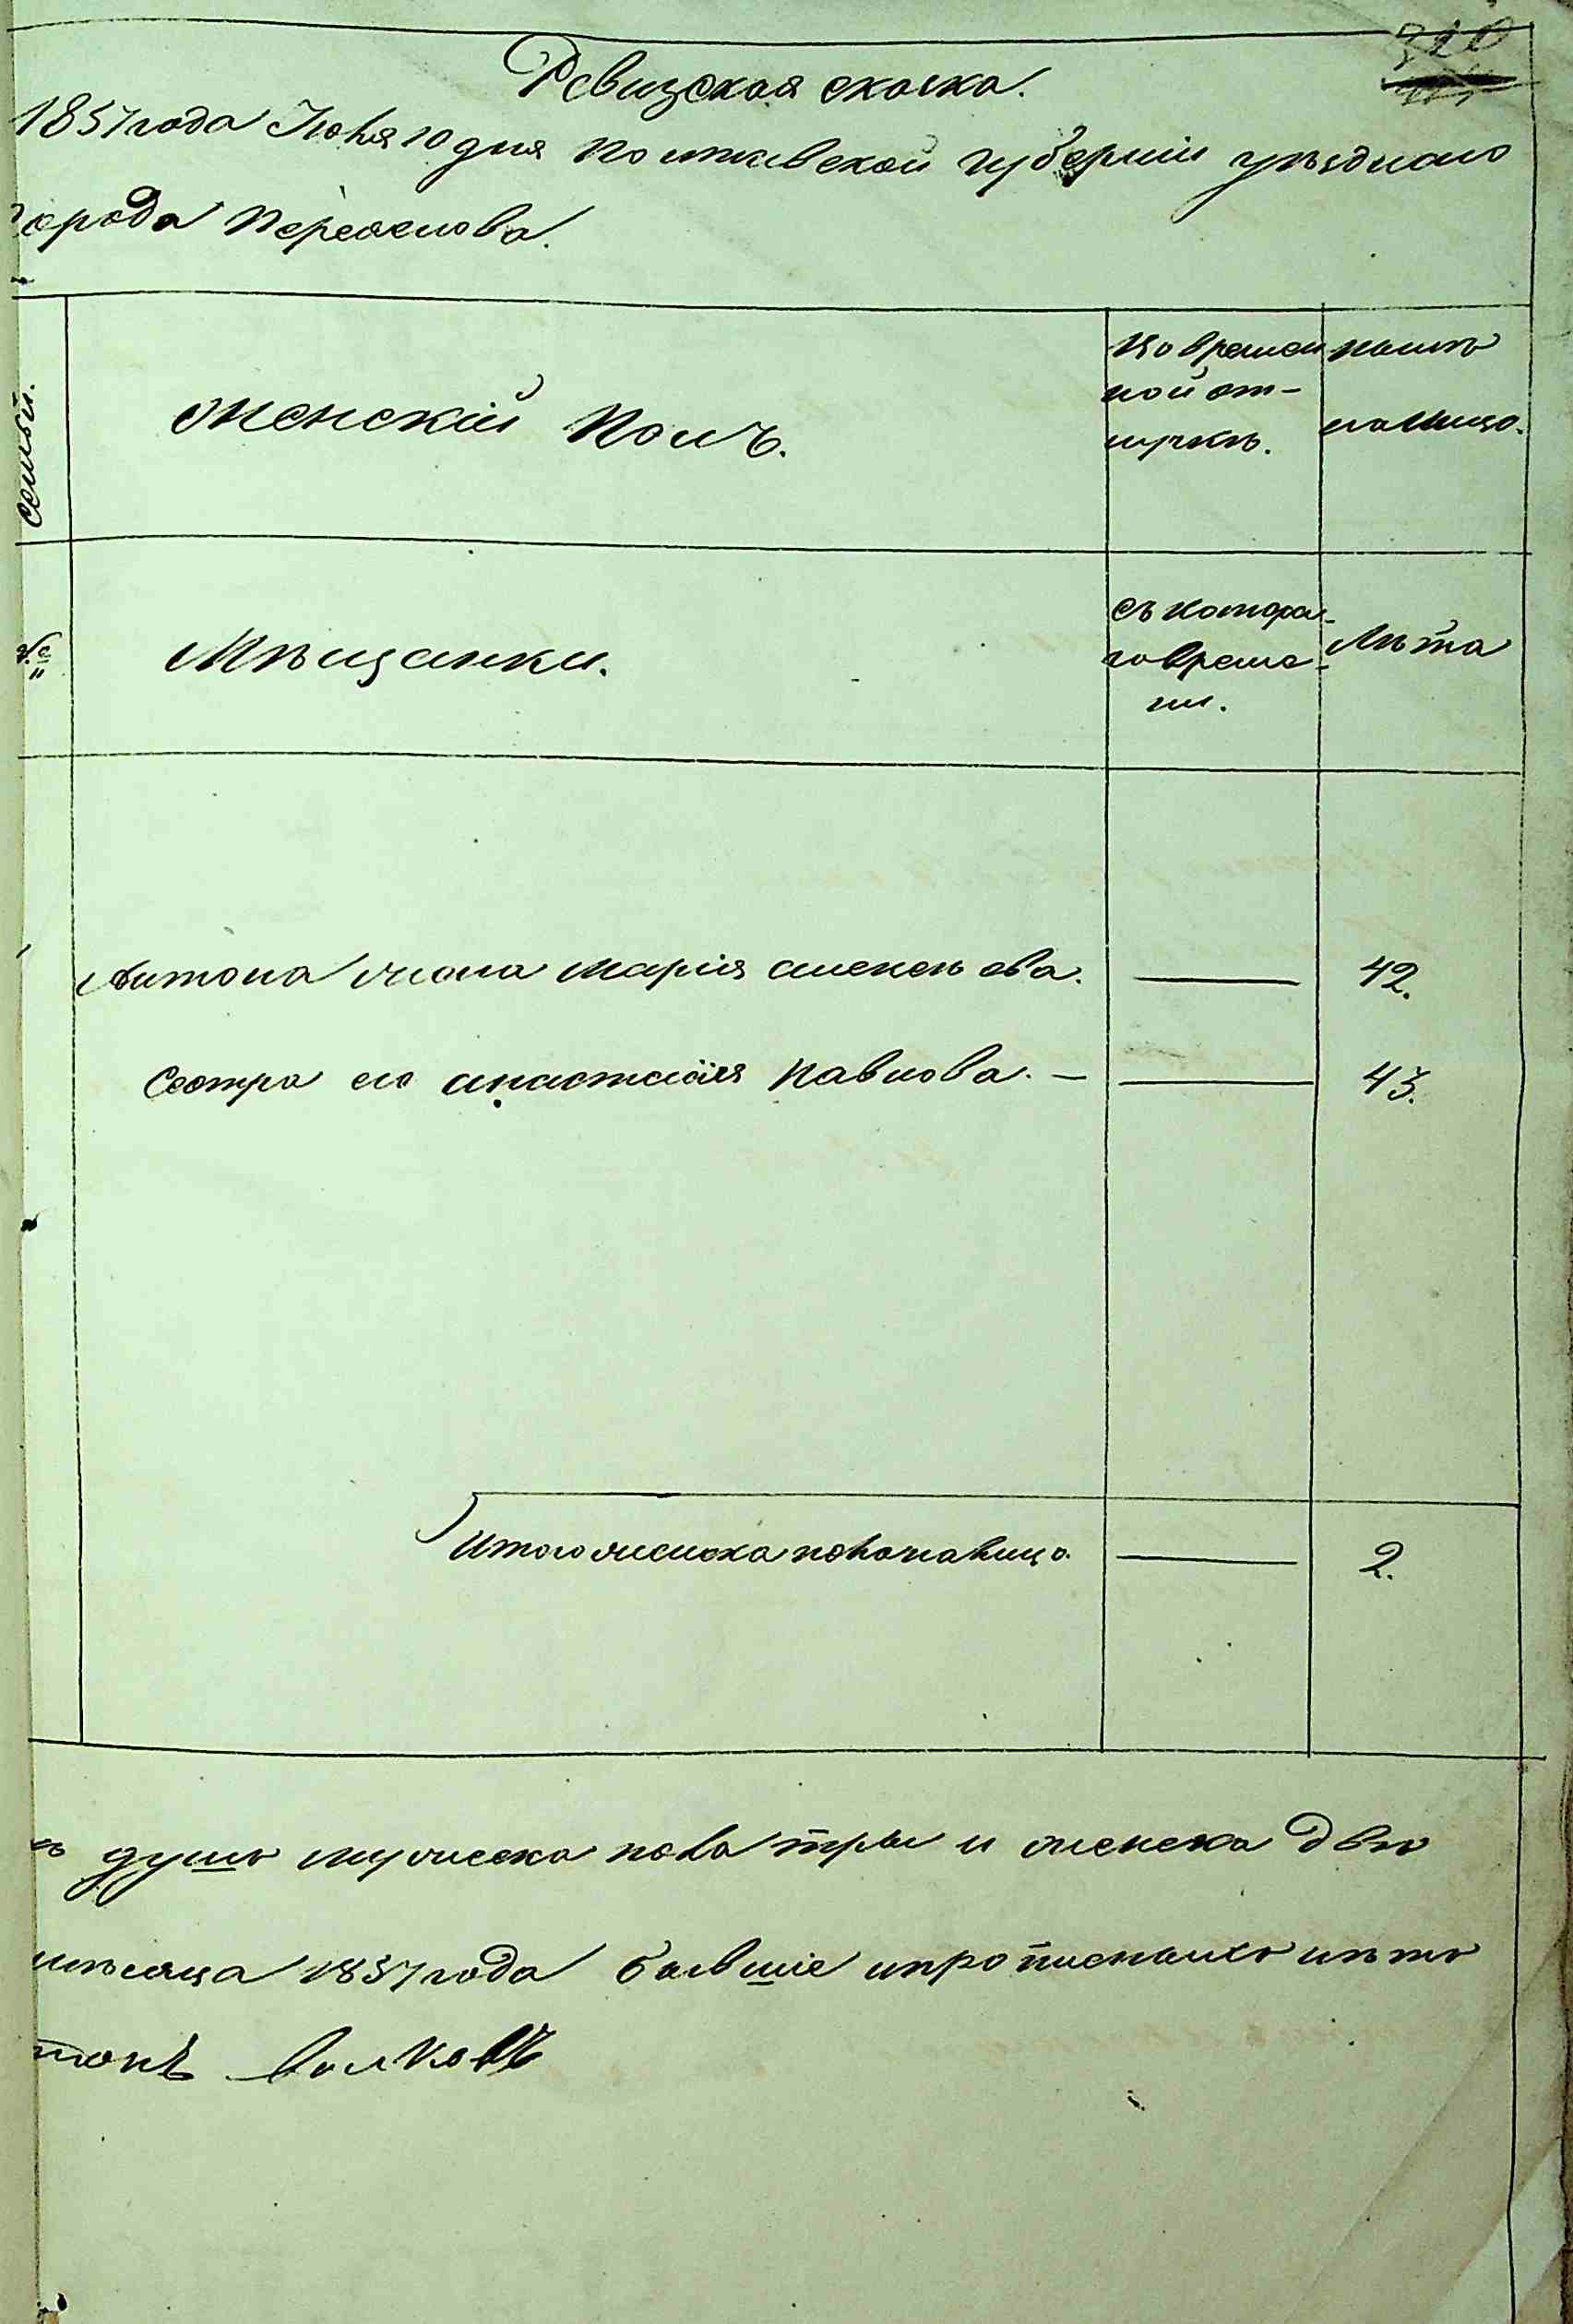 320
Ревизская сказка.
1857 года Июня 10 дня Полтавской губернии уѣзднаго
города Переяслова.
семьи.
Женскій Полъ.
Во времен
ной от-
лучкѣ.
нынѣ
на лицо.
№
Мѣщанки.
съ котора-
го време-
ни.
Лѣта
Антона жена Марія алексѣева. — 42.
Сестра его анастасія Павлова. — 43.
Итого женска пола на лицо. — 2.
душъ мужеска пола три и женска двѣ
мѣсяца 1857 года бывшіе и прописныхъ нѣтъ
тонъ Волковъ